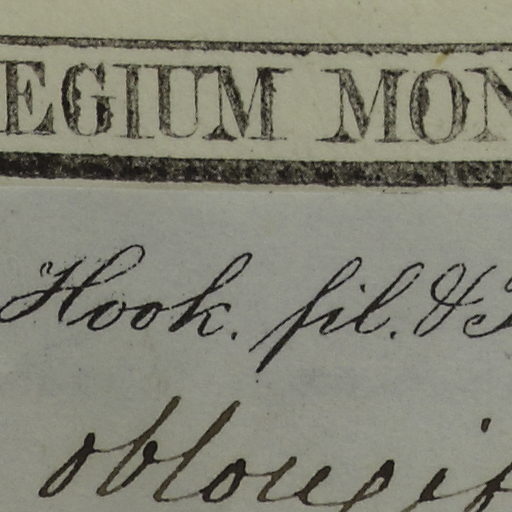 EGIUM MON
Hook. fil. & T
oblongif